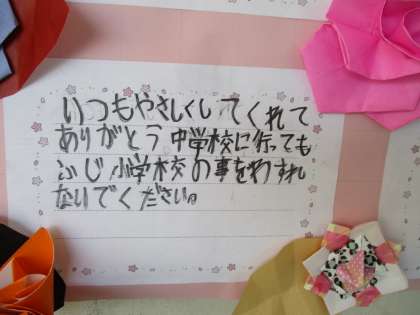 いつもやさしくしてくれて
ありがとう 中学校に行っても
ふじ小学校の事をわすれ
ないでください。